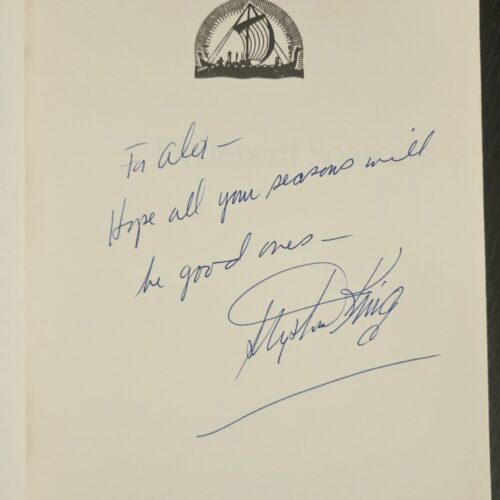 Different Seasons
For Alex—
Hope all your seasons will
be good ones—
Stephen King